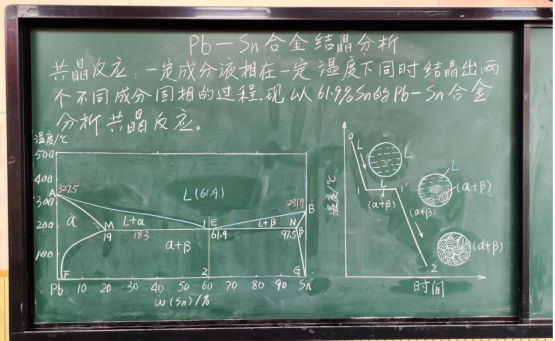 Pb-Sn合金结晶分析
共晶反应:一定成分液相在一定温度下同时结晶出两
个不同成分固相的过程.现以61.9%Sn的Pb-Sn合金
分析共晶反应。
温度/℃
500
400
300
200
100
A
327.5
L(61.9)
231.9
B
α
L+α
M
19
183
1
E
61.9
L+β
N
97.5
β
α+β
F
2
G
Pb
10
20
30
40
50
60
70
80
90
Sn
w(Sn)/%
温度/℃
0
L
L
1
L
1'
(α+β)
L
(α+β)
(α+β)
(α+β)
2
时间